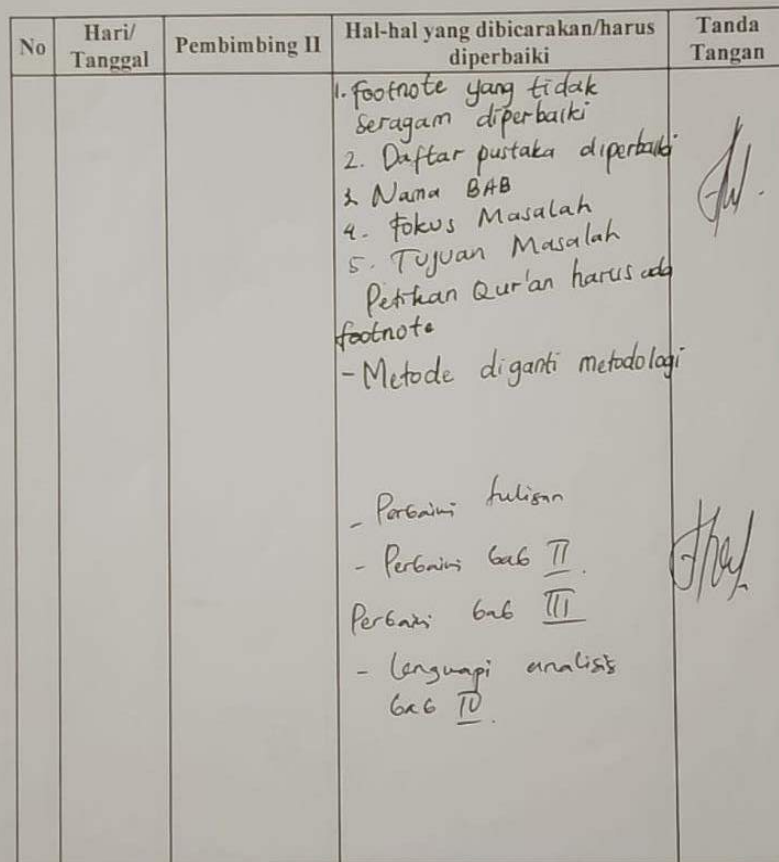 No
Hari/
Tanggal
Pembimbing II
Hal-hal yang dibicarakan/harus
diperbaiki
Tanda
Tangan
1. footnote yang tidak
seragam diperbaiki
2. Daftar pustaka diperbaiki
3. Nama BAB
4. Fokus Masalah
5. Tujuan Masalah
Petikan Qur'an harus ada
footnote
- Metode diganti metodologi
- Perbaiki tulisan
- Perbaiki bab II.
Perbaiki bab III
- Lengkapi analisis
bab IV.